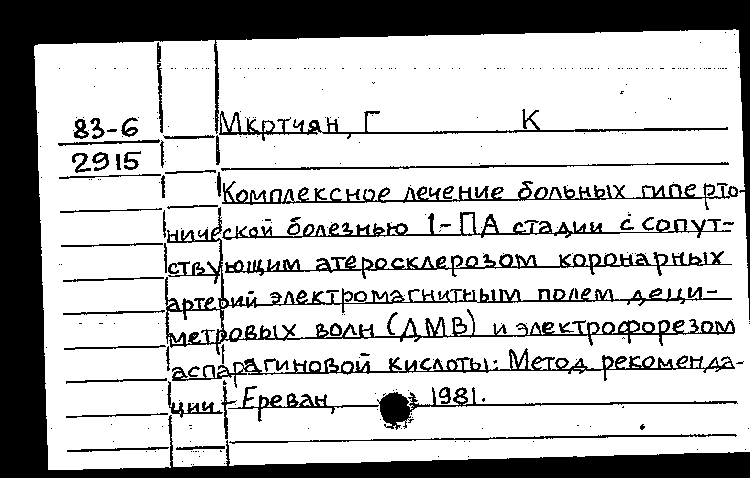 83-6 Мкртчян, Г К
2915
Комплексное лечение больных гиперто-
нической болезнью 1-ПА стадии с сопут-
ствующим атеросклерозом коронарных
артерий электромагнитным полем деци-
метровых волн (ДМВ) и электрофорезом
аспарагиновой кислоты: Метод. рекоменда-
ции.-Ереван, 1981.